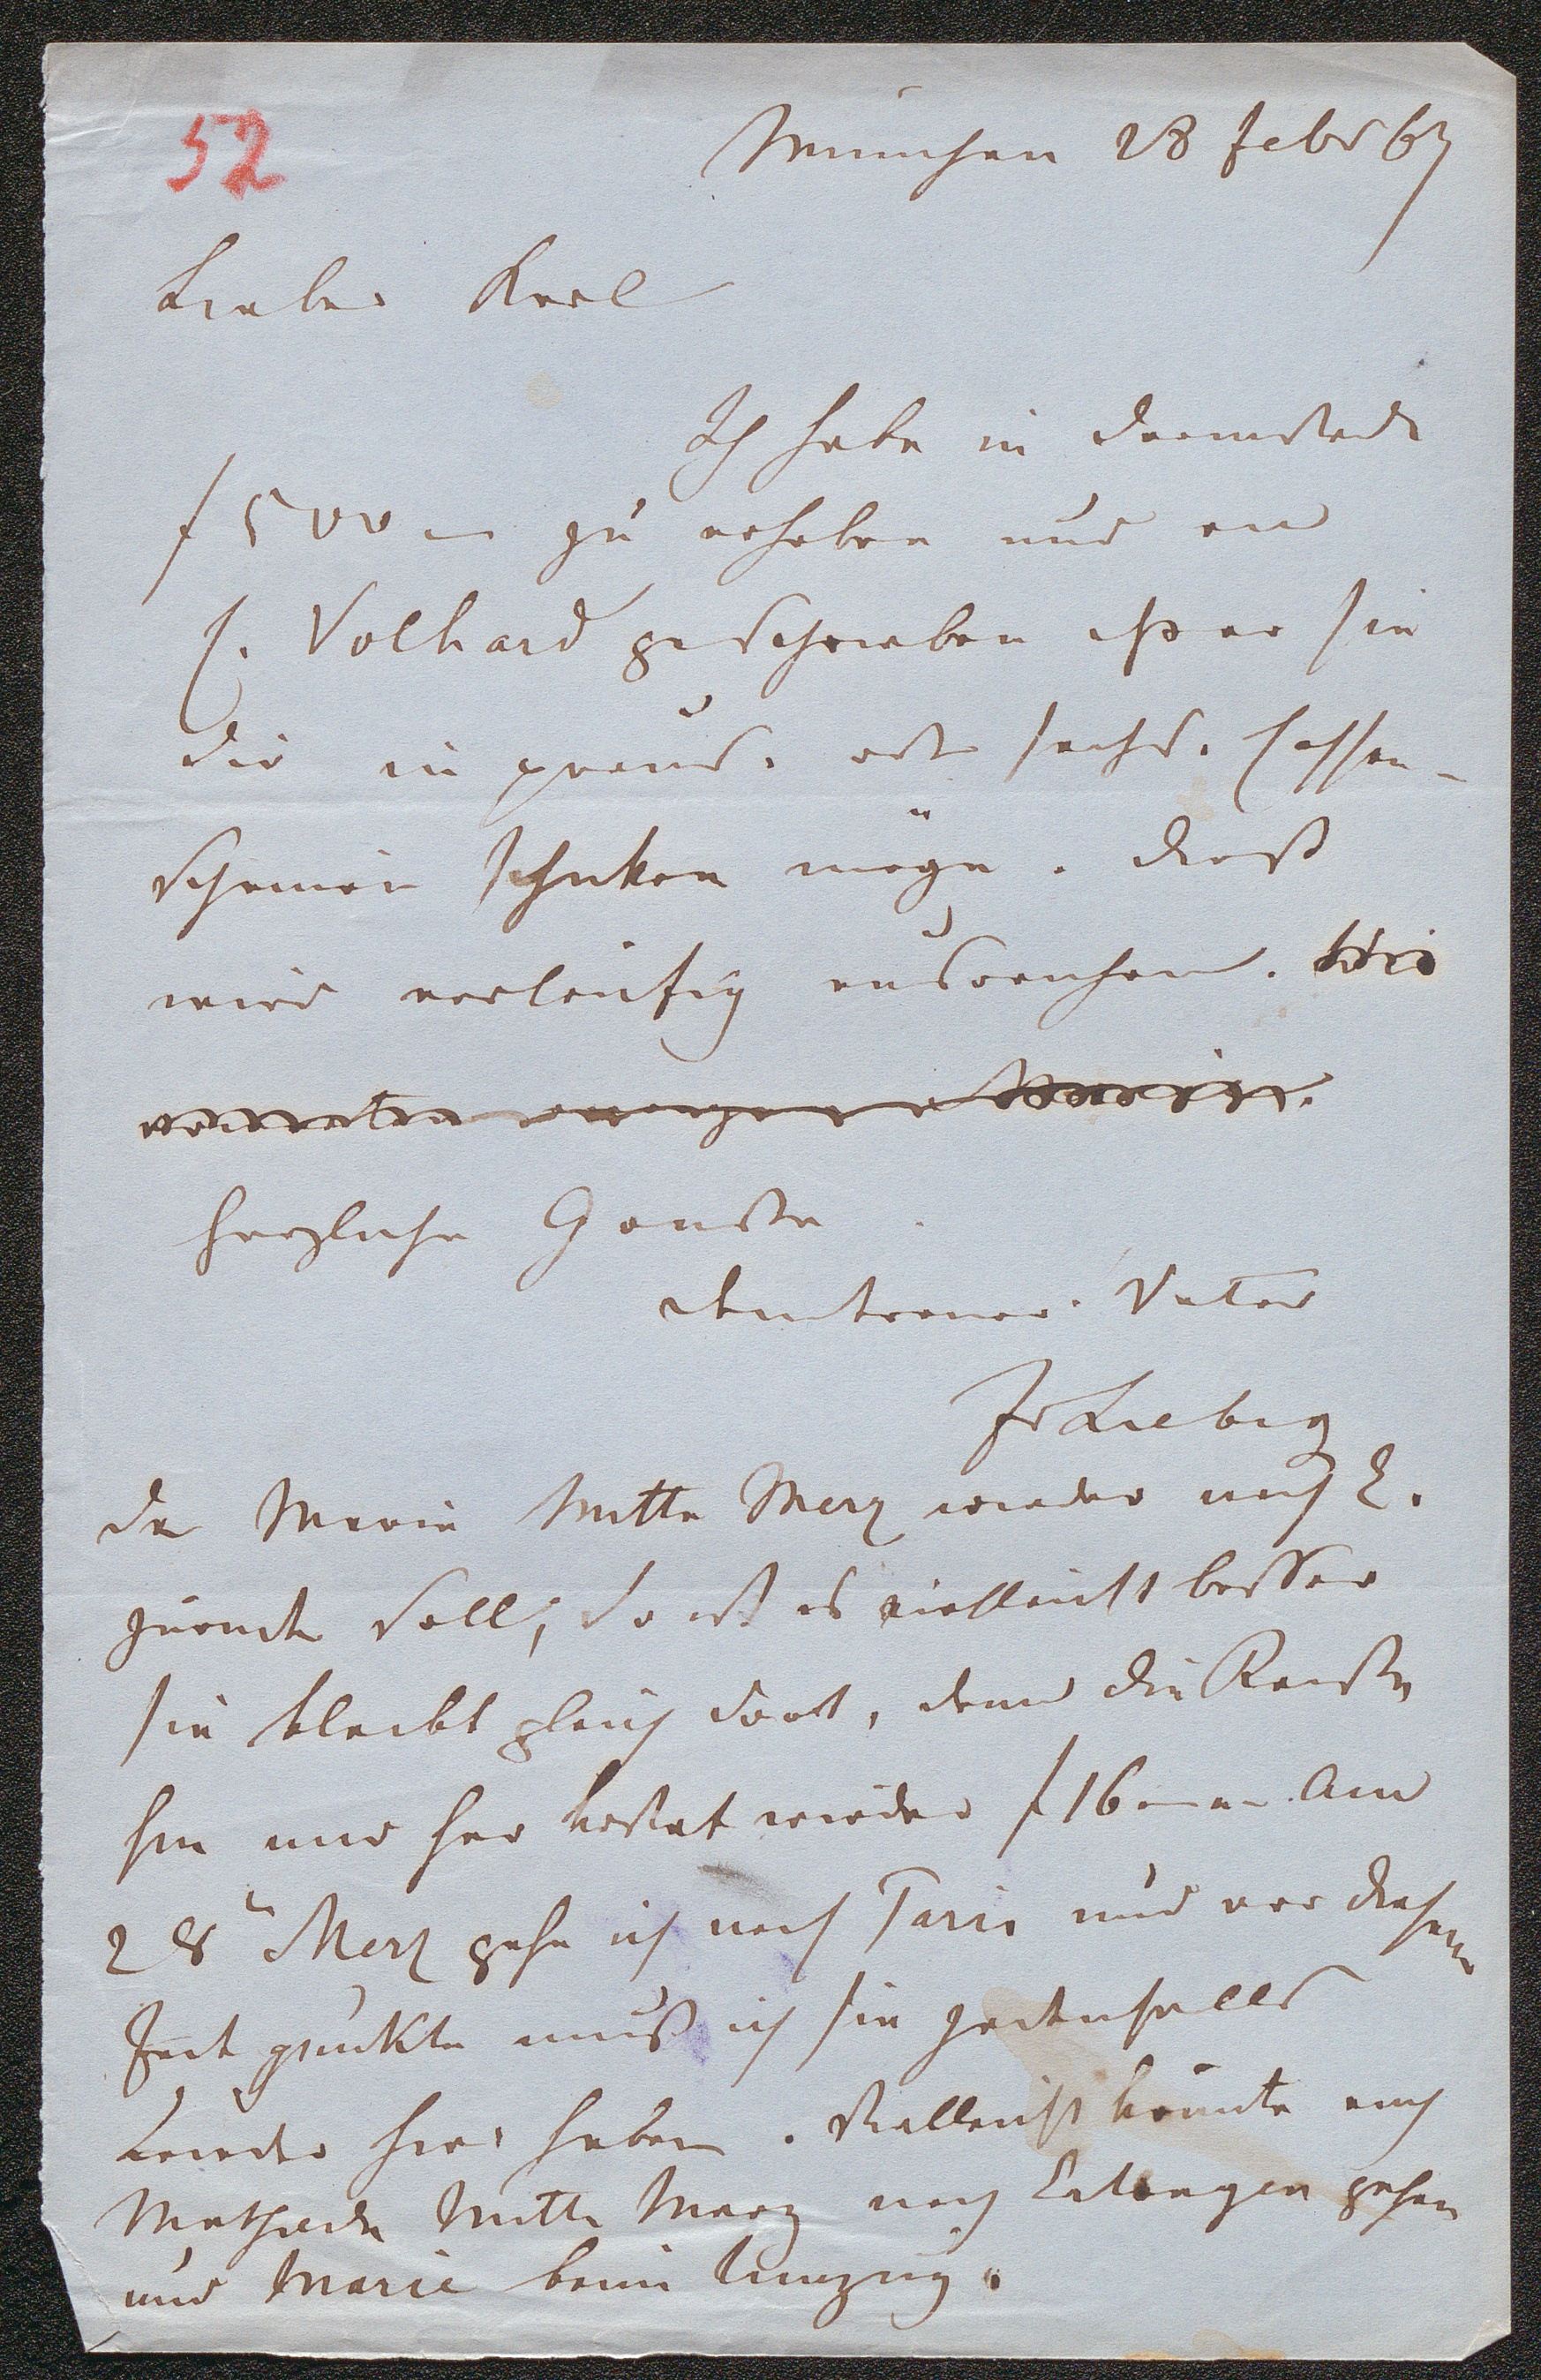 52
München 28 Febr 67
Lieber Karl
Ich habe in Darmstadt
f 500 zu erheben und an
J. Volhard geschrieben daß er sie
Dir in preus. od sächs. Cassen-
scheinen schicken möge. Dieß
wird vorläufig ausreichen. Wir
erwarten morgen Marie.
Herzliche Grüsse
Dein treuer Vater
Jv Liebig
Da Marie Mitte Merz wieder nach E.
zurück soll, so ist es vielleicht besser
sie bleibt gleich dort, denn die Reise
hin und her kostet wieder f 16 Am
28 Merz gehe ich nach Paris und vor diesem
Zeitpunkte muß ich sie jedenfalls
wieder hier haben. Vielleicht könnte auch
Mathilde Mitte Merz nach Erlangen gehen
und Marie beim Umzug.